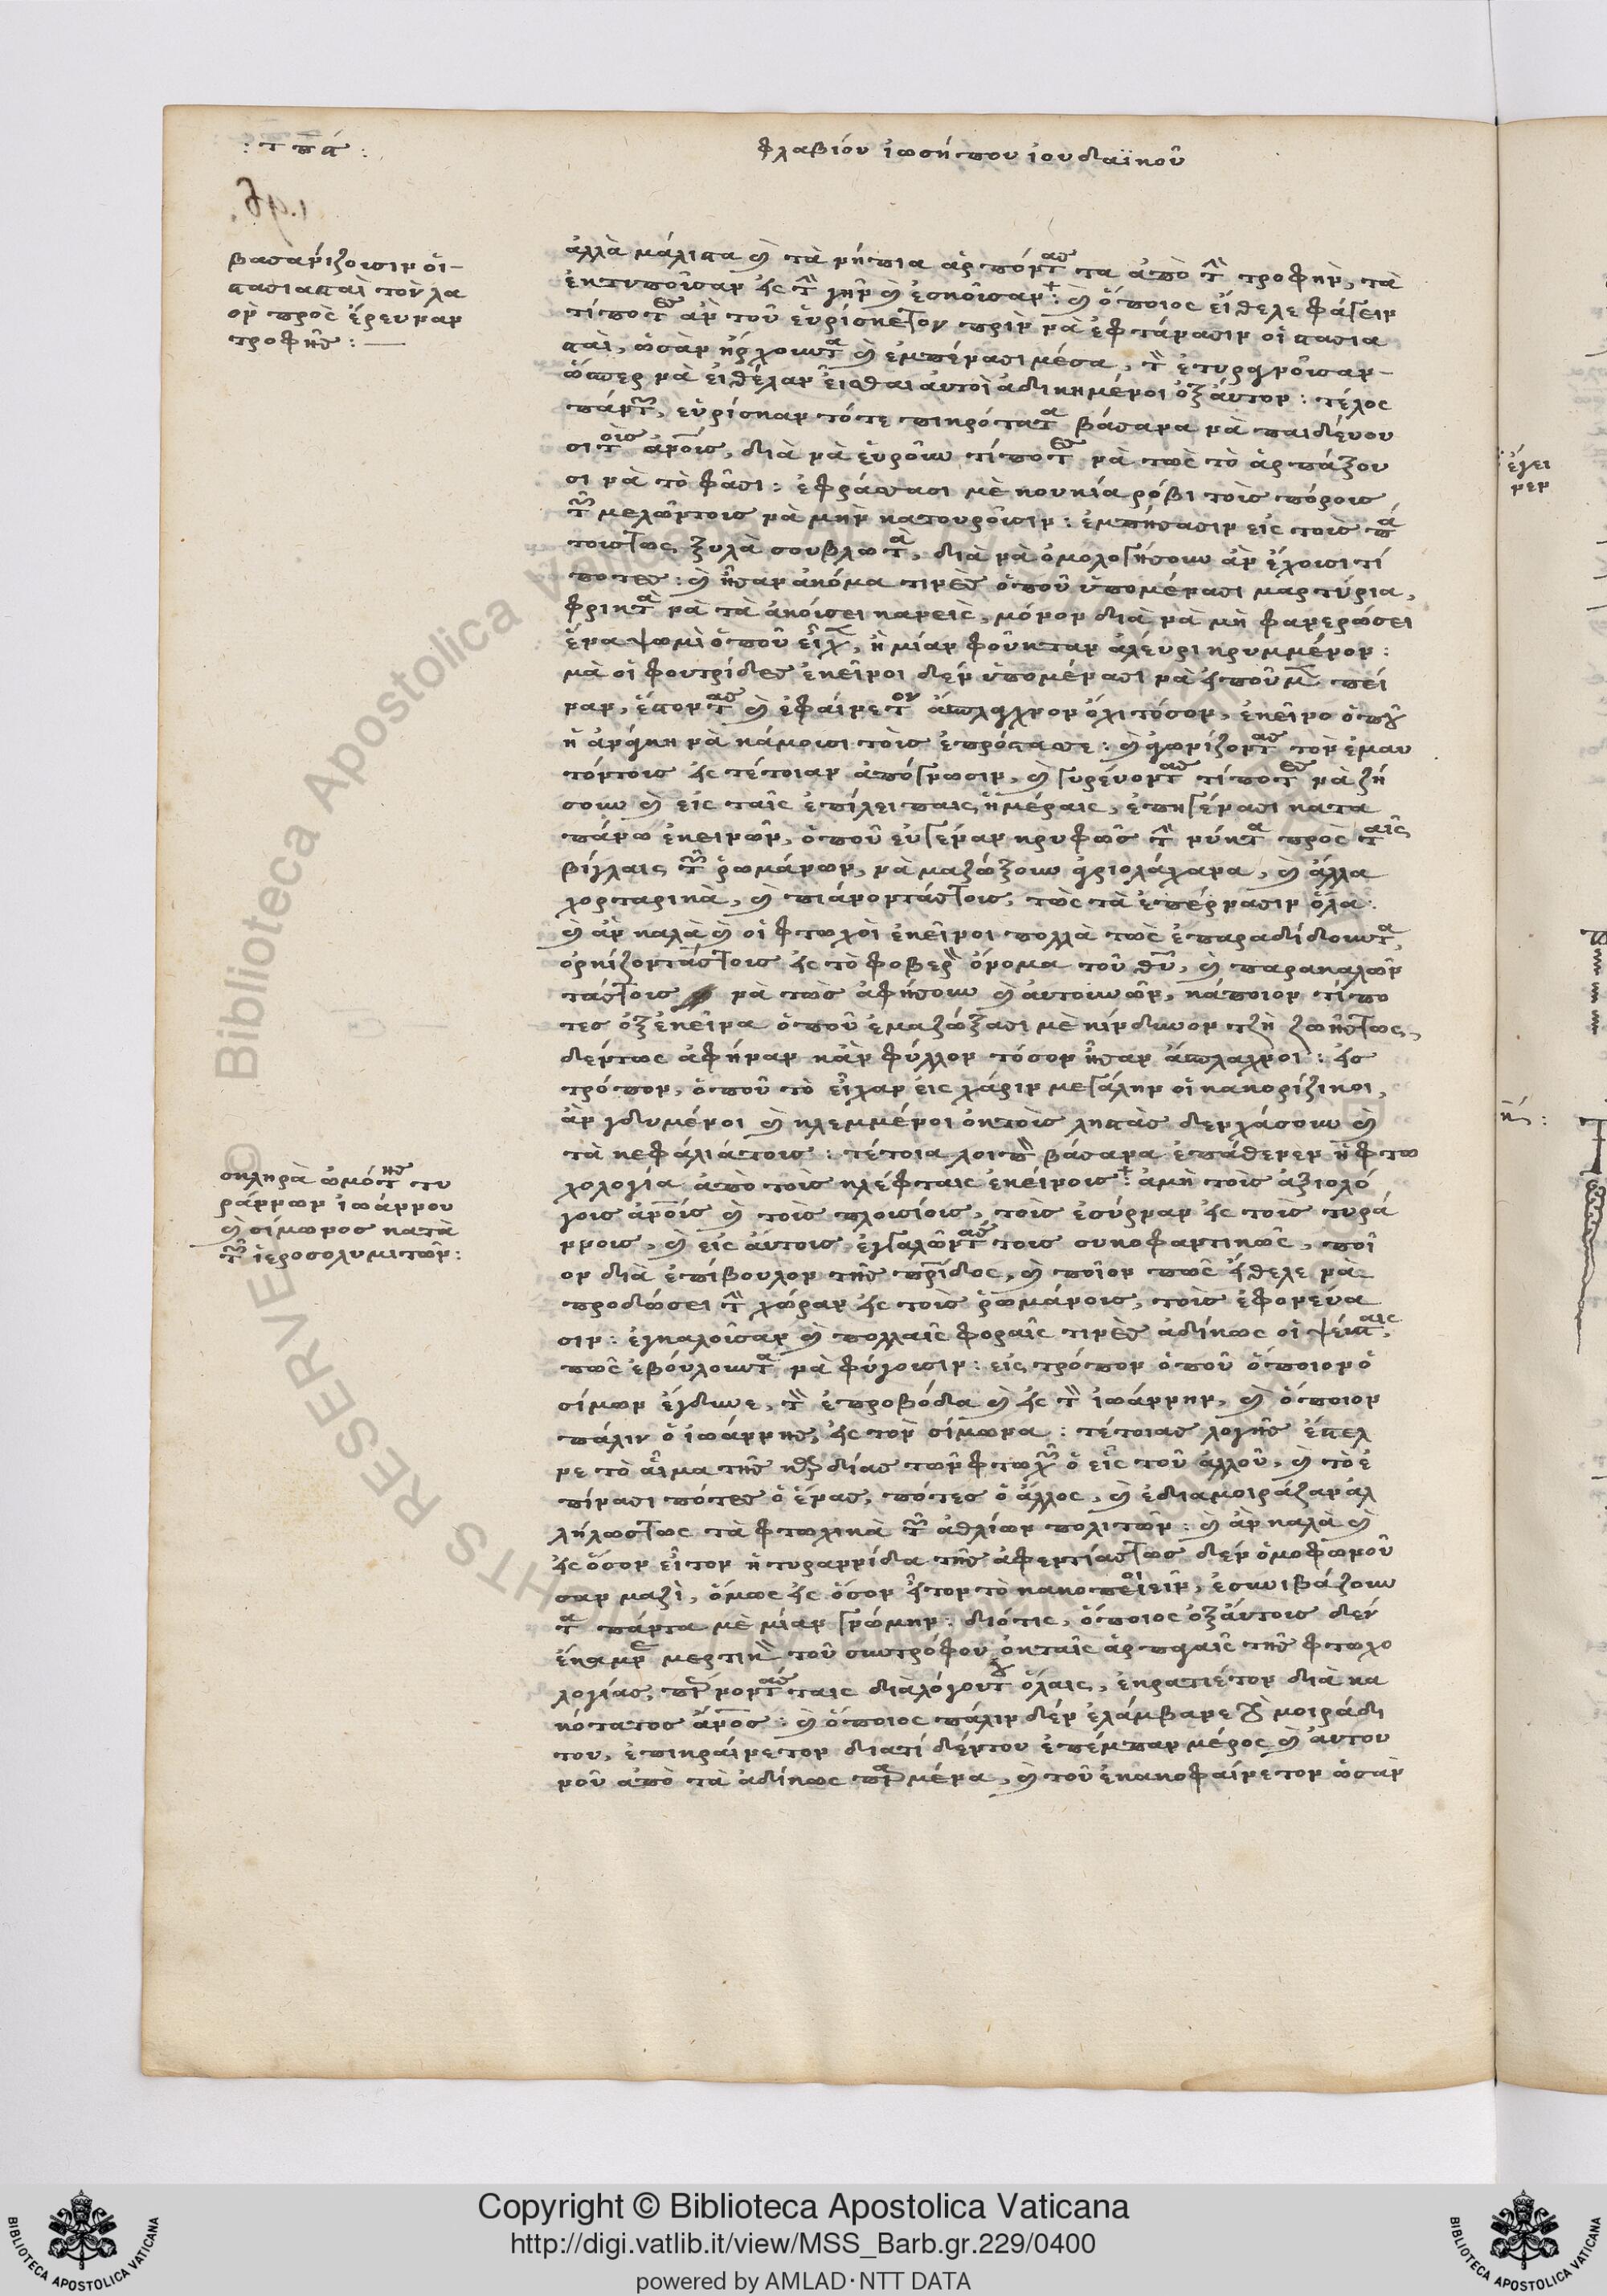 : τπα :
φλαβίου ἰωσήπου ἰουδαϊκοῦ
βασανίζουσιν οἱ
στασιασταὶ τὸν λα
ὸν πρὸς ἔρευναν
τροφῆς :
ἀλλὰ μάλιστα καὶ τὰ νήπια ἁρπόντας τα ἀπὸ τὴν τροφὴν, τὰ
ἐκτυποῦσαν εἰς τὴν γῆν καὶ ἐσκοῦσαν : καὶ ὅποιος εἴθελε φάγειν
τίποτες ἂν τοῦ εὑρίσκετον πρὶν νὰ ἐφτάνασιν οἱ στασια
σταὶ, ὡσὰν ἤρχουντα καὶ ἐμπένασι μέσα, τὸν ἐτυραννοῦσαν
ὥσπερ νὰ εἰθέλαν εἶσθαι αὐτοὶ ἀδικημένοι ὀξ αὐτον : τέλος
πάντων, εὑρίσκαν τότε πικρότατα βάσανα νὰ παιδεύου
σι τοὺς ἀνους, διὰ νὰ εὑροῦν τίποτες νὰ τῶς τὸ ἁρπάξου
σι νὰ τὸ φᾶσι : ἐφράσσασι μὲ κουκία ρόβι τοὺς πόρους
τῶν μελῶν τους νὰ μὴν κατουροῦσιν : ἐμπήσασιν εἰς τοὺς
τους τως ξυλὰ σουβλωτὰ, διὰ νὰ ὁμολογήσουν ἂν ἔχουσι τί
ποτες : καὶ ἦσαν ἀκόμα τινὲς ὁποῦ ὑπομένασι μαρτύρια,
φρικτὰ νὰ τὰ ἀκούσει κανεὶς, μόνον διὰ νὰ μὴ φανερώσει
ἕνα ψωμὶ ὁποῦ εἶχεν, ἢ μίαν φοῦκταν ἀλεύρι κρυμμένον :
μὰ οἱ φουτρίδες ἐκεῖνοι δὲν ὑπομένασι νὰ εἰποῦμεν πεί
ναν, ἔστοντας καὶ ἐφαίνετον ἄσπλαχνον ὄχι τόσον, ἐκεῖνο ὁποῦ
ἡ ἀνάγκη νὰ κάμουσι τοὺς ἐπρόσταξε : καὶ γνωρίζοντας τὸν ἐμαυ
τόν τους εἰς τέτοιαν ἀπόγνωσιν, καὶ γυρεύοντας τίποτες νὰ ζή
σουν καὶ εἰς ταῖς ἐπίλειπαις ἡμέραις, ἐπηγένασι κατα
πάνω ἐκεινῶν, ὁποῦ εὐγέναν κρυφῶς τὴν νύκτα πρὸς ταῖς
βίγλαις τῶν ῥωμάνων, νὰ μαζώξουν ἀγριολάχανα, καὶ ἄλλα
χορταρικὰ, καὶ πιάνοντάς τους, τῶς τὰ ἐπέρνασιν ὅλα :
καὶ ἂν καλὰ καὶ οἱ φτωχοὶ ἐκεῖνοι πολλὰ τῶς ἐπαραδίδουντα,
ὁρκίζοντάς τους εἰς τὸ φοβερὸν ὄνομα τοῦ θυ, καὶ παρακαλῶν
τάς τους νὰ τῶς ἀφήσουν καὶ αὐτουνῶν, κάποιον τίπο
τες ὀξ ἐκεῖνα ὁποῦ ἐμαζώξασι μὲ κίνδυνον τζῆ ζωῆς τως,
δέν τως ἀφῆναν κἂν φύλλον τόσον ἦσαν ἄσπλαχνοι : εἰς
τρόπον, ὁποῦ τὸ εἶχαν εἰς χάριν μεγάλην οἱ κακορίζικοι,
ἂν γδυμένοι καὶ κλεμμένοι ὀκ τοὺς λῃστὰς δὲν χάσουν καὶ
τὰ κεφάλια τους : τέτοια λοιπὸν βάσανα ἐπάθενεν ἡ φτω
χολογία ἀπὸ τοὺς κλέφταις ἐκείνους : ἀμὴ τοὺς ἀξιολό
γους ἀνους καὶ τοὺς πλουσίους, τοὺς ἐσύρναν εἰς τοὺς τυρά
ννους, καὶ εἰς αὐτους ἐγκαλῶντας τους συκοφαντικῶς, ποῖ
ον διὰ ἐπίβουλον τῆς πρίδος, καὶ ποῖον πῶς εἴθελε νὰ
προδώσει τὴν χώραν εἰς τοὺς ῥωμάνους, τοὺς ἐφονεύα
σιν : ἐγκαλοῦσαν καὶ πολλαῖς φοραῖς τινὲς ἀδίκως οἱ ψεύσταις,
πῶς ἐβούλουντα νὰ φύγουσιν : εἰς τρόπον ὁποῦ ὅποιον ὁ
σίμων ἔγδυνε, τὸν ἐπροβόδα καὶ εἰς τὸν ἰωάννην, καὶ ὅποιον
πάλιν ὁ ἰωάννης, εἰς τὸν σίμωνα : τέτοιας λογῆς ἔστελ
νε τὸ αἷμα τῆς καρδίας τῶν φτωχῶν ὁ εἷς τοῦ ἀλλοῦ, καὶ τὸ ἐ
πίνασι πότες ὁ ἕνας, πότες ὁ ἄλλος, καὶ ἐδιαμοιράζαν ἀλ
λήλως τως τὰ φτωχικὰ τῶν ἀθλίων πολιτῶν : καὶ ἂν καλὰ καὶ
εἰς ὅσον εἶτον ἡ τυραννίδα τῆς ἀφεντίας τως δὲν ὁμοφωνοῦ
σαν μαζὶ, ὅμως εἰς ὅσον εἶτον τὸ κακοποιεῖν, ἐσυνιβάζουν
τα πάντα μὲ μίαν γνώμην : διότις, ὅποιος ὀξ αὐτους δὲν
ἔκαμνε μερτικὸν τοῦ συντρόφου ὀκ ταῖς ἁρπαγαῖς τῆς φτωχο
λογίας, πέρνοντας ταις διὰ λόγου του ὅλαις, ἐκρατιέτον διὰ κα
κότατος ἀνος : καὶ ὅποιος πάλιν δὲν ἐλάμβανε τὸ μοιράδι
του, ἐπικραίνετον διατί δέν του ἐπέμπαν μέρος καὶ αὐτου
νοῦ ἀπὸ τὰ ἀδίκως παρμένα, καὶ τοῦ ἐκακοφαίνετον ὡσὰν
σκληρὰ ὠμότης τυ
ράννων ἰωάννου
καὶ σίμωνος κατὰ
τῶν ἱεροσολυμιτῶν :
Copyright © Biblioteca Apostolica Vaticana
http://digi.vatlib.it/view/MSS_Barb.gr.229/0400
powered by AMLAD · NTT DATA